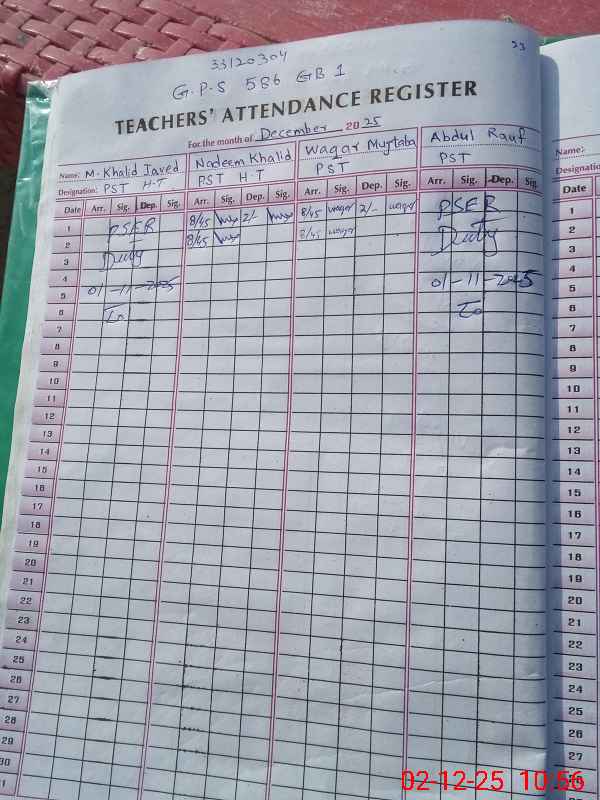 23
33120304
G.P.S 586 GB 1
TEACHERS' ATTENDANCE REGISTER
For the month of December 2025
Name: M. Khalid Javed Nadeem Khalid Waqar Mujtaba Abdul Rauf Name:
Designation: PST H-T PST H-T PST PST Designation
Date Arr. Sig. Dep. Sig. Arr. Sig. Dep. Sig. Arr. Sig. Dep. Sig. Arr. Sig. Dep. Sig. Date
1 PSER 8/45 2/- 8/45 waqar 2/- waqar PSER 1
2 8/45 8/45 waqar 2
3 Duty Duty 3
4 4
5 01-11-2025 01-11-2025 5
6 To To 6
7 7
8 8
9 9
10 10
11 11
12 12
13 13
14 14
15 15
16 16
17 17
18 18
19 19
20 20
21 21
22 22
23 23
24 24
25 25
26 26
27 27
28 28
29
30
02-12-25 10:56